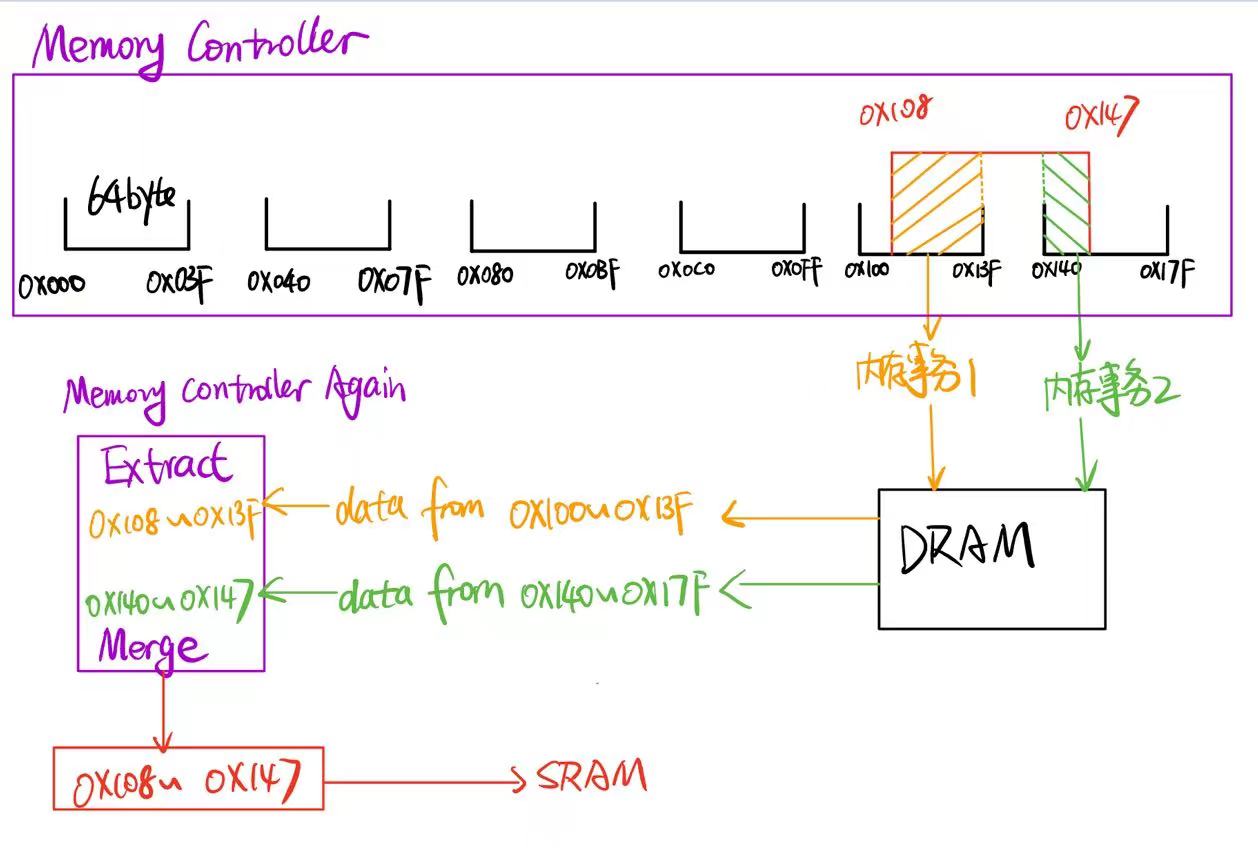 Memory Controller
0X108
0X147
64byte
0X000
0X03F
0X040
0X07F
0X080
0X0BF
0X0C0
0X0FF
0X100
0X13F
0X140
0X17F
内存事务1
内存事务2
Memory Controller Again
Extract
0X108~0X13F
data from 0X100~0X13F
DRAM
0X140~0X147
data from 0X140~0X17F
Merge
0X108~0X147
SRAM